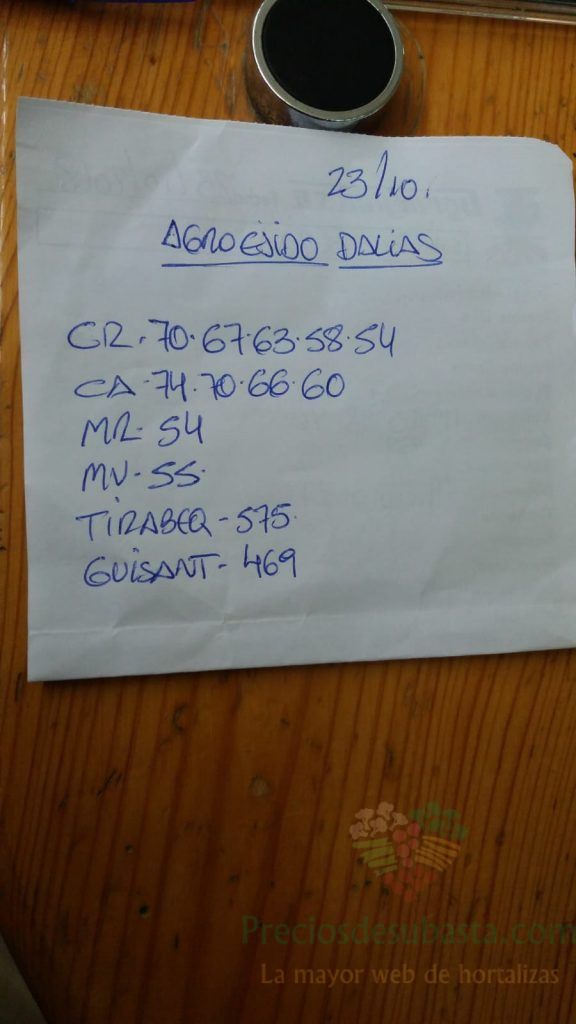 23/10.
AGROEJIDO DALIAS
CR. 70. 67. 63. 58. 54
CA. 74. 70. 66. 60
MR- 54
MV- 55.
TIRABEQ- 575.
GUISANT- 469
Preciosdesubasta.com
La mayor web de hortalizas